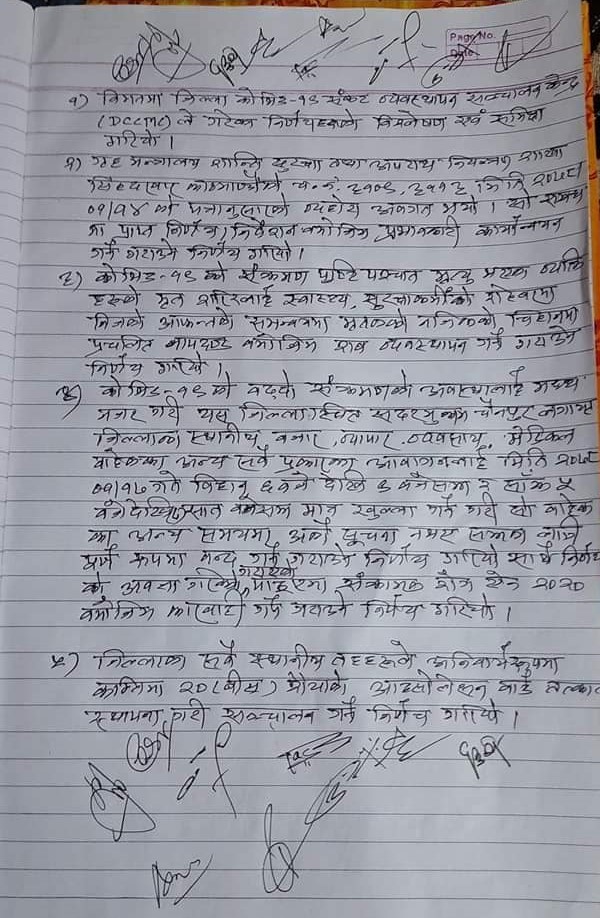 Page No.
Date
१) विगतमा जिल्ला कोभिड-१९ संकट व्यवस्थापन सञ्चालन केन्द्र
(DCCMC) ले गरेका निर्णयहरूको विश्लेषण एवं समिक्षा
गरियो ।
२) गृह मन्त्रालय शान्ति सुरक्षा तथा अपराध नियन्त्रण शाखा
सिंहदरवार काठमाण्डौको च.नं. मिति २०७८/
०१/१४ को पत्रानुसारको व्यहोरा अवगत भयो । सो सम्बन्ध
मा प्राप्त निर्णय, निर्देशन बमोजिम प्रभावकारी कार्यान्वयन
गर्ने गराउने निर्णय गरियो ।
३) कोभिड-१९ को संक्रमण पुष्टि पश्चात मृत्यु भएका व्यक्ति
हरूको मृत शरिरलाई स्वास्थ्य, सुरक्षाकर्मीको रोहवरमा
निजको आफन्तको समन्वयमा मृतकको नजिकको चिहानमा
प्रचलित मापदण्ड बमोजिम शव व्यवस्थापन गर्ने गराउने
निर्णय गरियो ।
४) कोभिड-१९ को बढ्दो संक्रमणको अवस्थालाई मध्य
नजर गरी यस जिल्लास्थित सदरमुकाम चैनपुर लगायत
जिल्लाका स्थानीय बजार, व्यापार, व्यवसाय, मेडिकल
बाहेकका अन्य सबै प्रकारका आवागमनलाई मिति २०७८
०१/१७ गते बिहान ६ बजे देखि ९ बजेसम्म र साँझ ५
बजे देखि सात बजेसम्म मात्र खुल्ला गर्ने गरी सो बाहेक
का अन्य समयमा अर्को सूचना नभए सम्मका लागि
पूर्ण रूपमा बन्द गर्ने गराउने निर्णय गरियो साथै निर्णय
को अवज्ञा गरेको गराएको पाइएमा संक्रामक रोग ऐन २०२०
बमोजिम कारबाही गर्ने गराउने निर्णय गरियो ।
५) जिल्लाका सबै स्थानीय तहहरूले अनिवार्य रूपमा
कम्तिमा २०(बीस) शैयाको आइसोलेसन वार्ड तत्काल
स्थापना गरी सञ्चालन गर्ने निर्णय गरियो ।